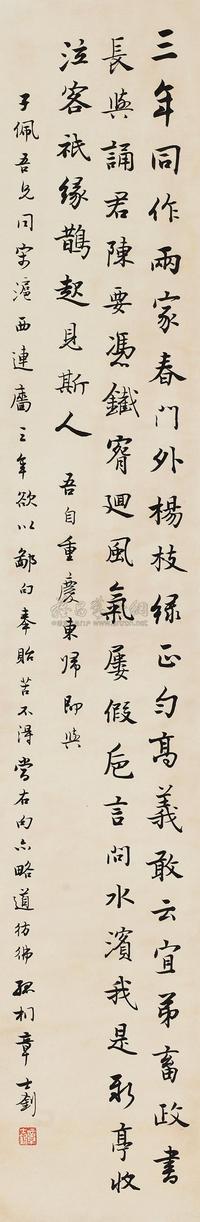 三年同作兩家春門外楊枝綠正勻高義敢云宜弟畜政書
長與誦君陳要憑鐵迴風氣屢假卮言問水濱我是新亭收
泣客祇緣鵲起見斯人 吾自重慶東歸即與
子佩吾兄同寓滬西連廧三年欲以鄙句奉貽苦不得當右句亦略道彷彿 孤桐章士釗